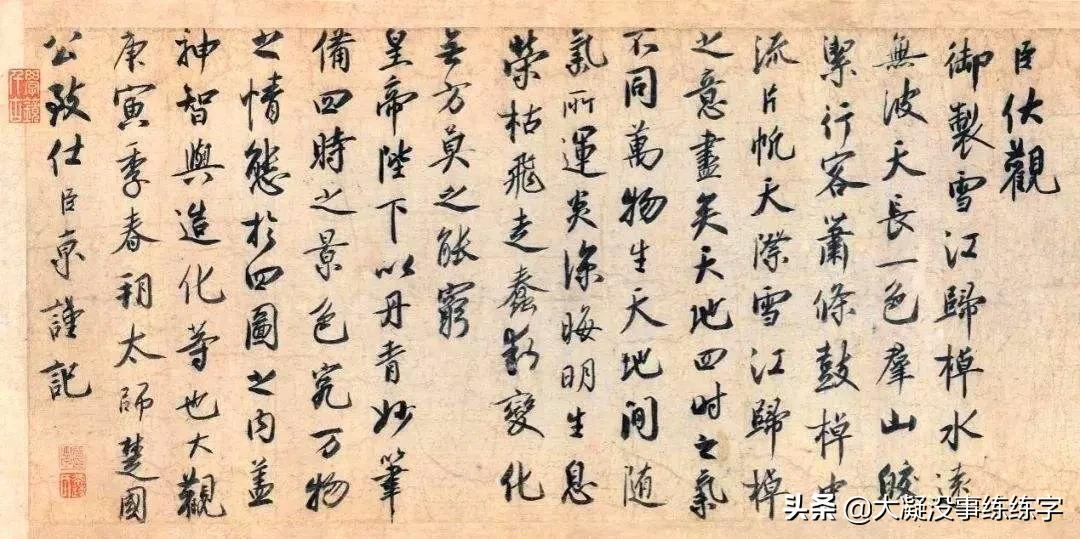 臣伏觀
御製雪江歸棹水遠
無波天長一色羣山皎
潔行客蕭條鼓棹中
流片帆天際雪江歸棹
之意盡矣天地四时之氣
不同萬物生天地間随
氣所運炎涼晦明生息
榮枯飛走蠢動變化
無方莫之能窮
皇帝陛下以丹青妙筆
備四時之景色究万物
之情態於四圖之内蓋
神智與造化等也大觀
庚寅季春朔太師楚國
公致仕臣京謹記
头条 @大凝没事练练字